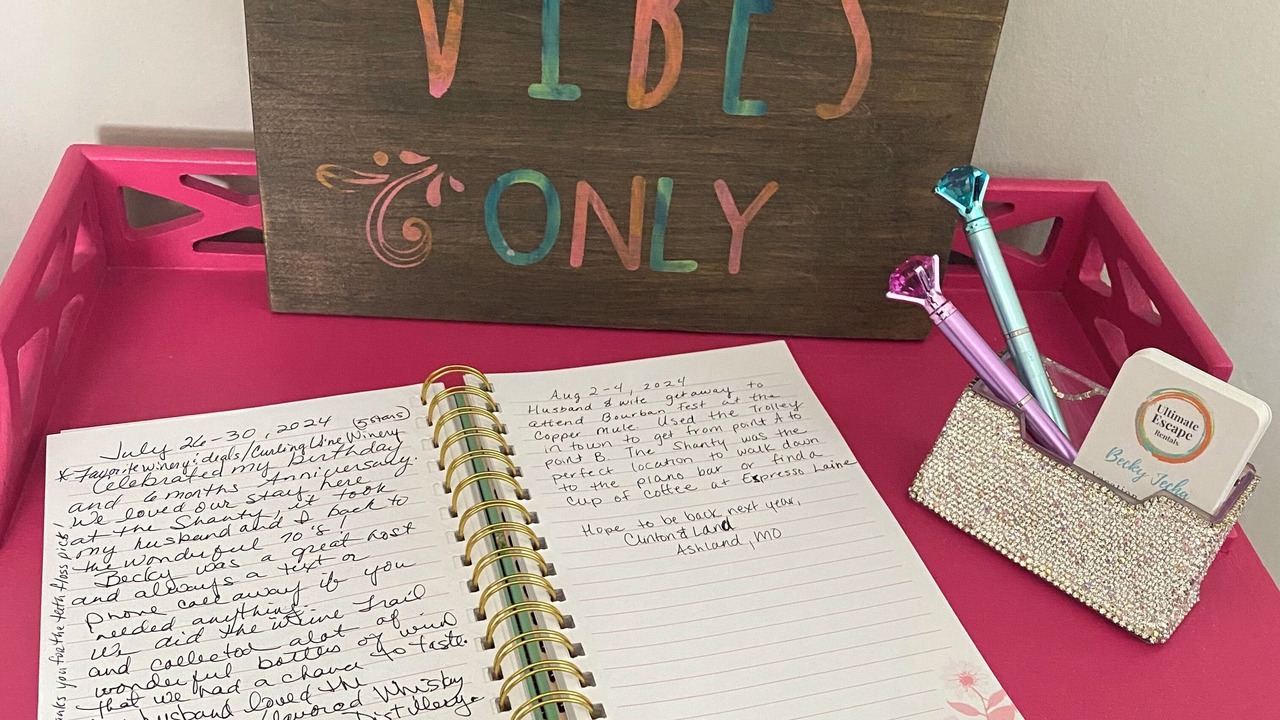 VIBES
ONLY
July 26-30, 2024 (5 stars)
* Favorite Winery: ideals/Curling Vine Winery
Celebrated my Birthday
and 6 months Anniversary.
We loved our stay here
at the Shanty, it took
my husband and I back to
the wonderful 70's!
Becky was a great host
and always a text or
phone call away if you
needed anything.
We did the Wine Trail
and collected alot of
wonderful bottles of wine
that we had a chance to taste.
husband loved the
flavored Whisky
Distillery.
you for the teeth floss picks!
Aug 2-4, 2024
Husband & wife getaway to
attend Bourban Fest at the
Copper Mule. Used the Trolley
in town to get from point A to
point B. The Shanty was the
perfect location to walk down
to the piano bar or find a
Cup of Coffee at Espresso Laine
Hope to be back next year,
Clinton & Land
Ashland, MO
Ultimate
Escape
Rentals
Becky Jecha